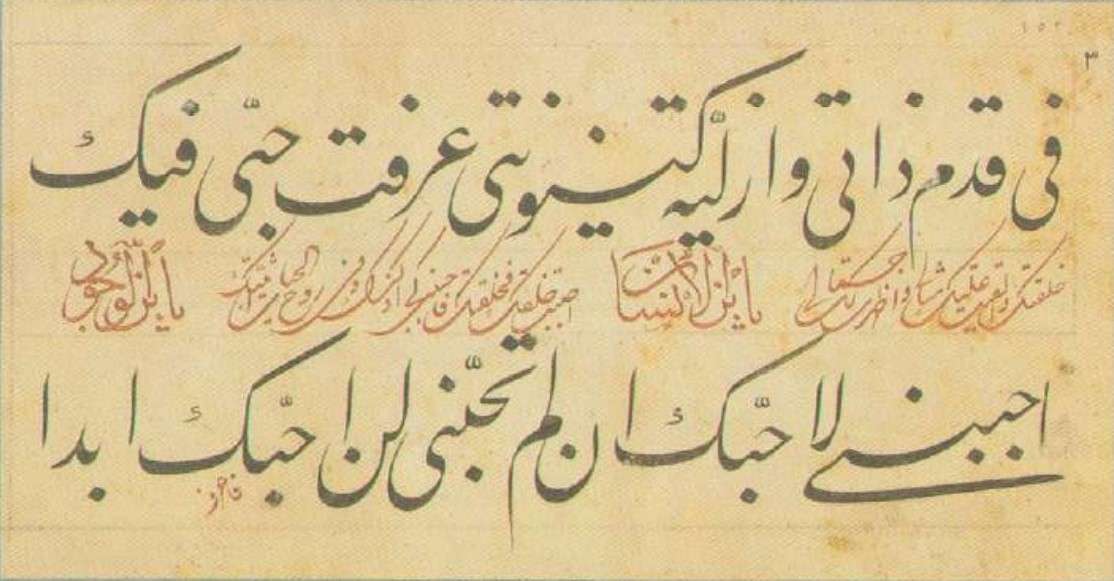 ٣
فی قدم ذاتی وازلیّه کینونتی عرفت حبّی فیک
خلقتک والقیت علیک مثالی واظهرت لک جمالی یا بن الانسان احببت خلقتک فخلقتک فاحببنی کی اذکرک وفی روح الحیات اثبّتک یا بن الوجود
احببنی لاحبّک ان لم تحبّنی لن احبّک ابدا
فاعرف